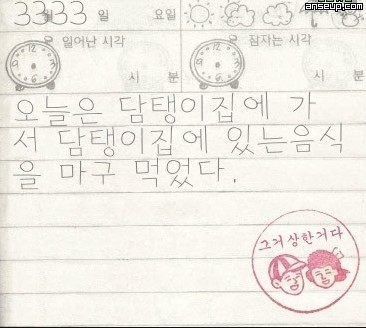 anseup.com
33월33일 요일
일어난 시각 잠자는 시각
시 분 시 분
오늘은 담탱이집에 가
서 담탱이집에 있는음식
을 마구 먹었다.
그거 상한거다